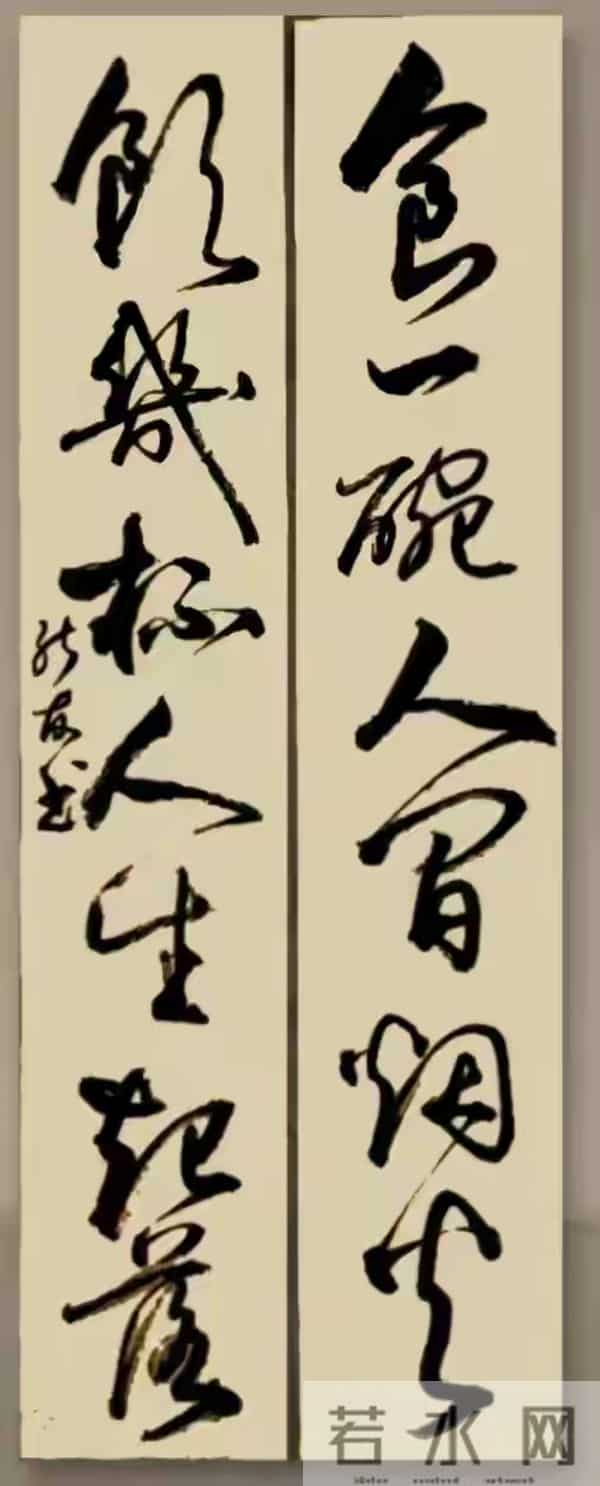 食一碗人間烟火
飲幾杯人生起落
若水网